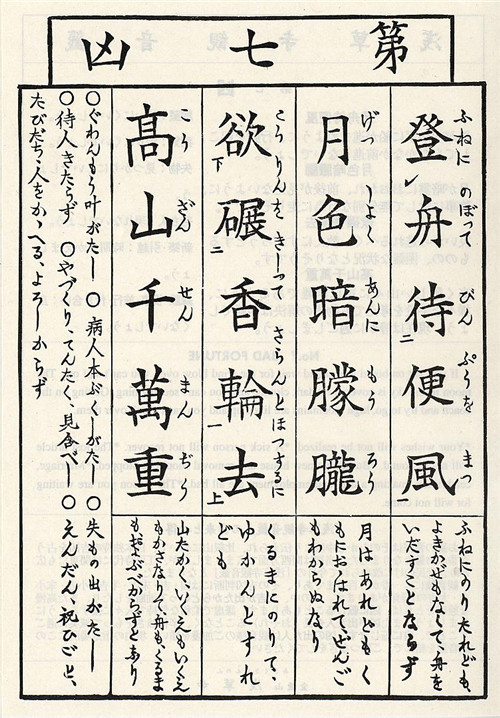 第七凶
ふねに のぼつて びん ぷうを まつ
登レ舟待二便風一
ふねにのりたれども、
よきかぜもなくて、舟を
いだすことならず
げつ しよく あんに もう ろう
月色暗朦朧
月はあれども、くも
におゝはれて、ぜんご
もわからぬなり
こうりんを きしつて さらんとほつするに
欲下碾二香輪一去上
くるまにのりて、
ゆかんとすれ
ども、
こう ざん せん まん ぢう
高山千萬重
山たかく、いくえもいくえ
もかさなりて、舟も、くるま
もおよぶべからずとあり
〇ぐわんもう叶がたし 〇病人本ぶくしがたし 〇失もの出がたし
〇待人きたらず 〇やづくり、てんたく、見合べし 〇えんだん、祝ひごと、
たびだち、人をかゝへる、よろしからず